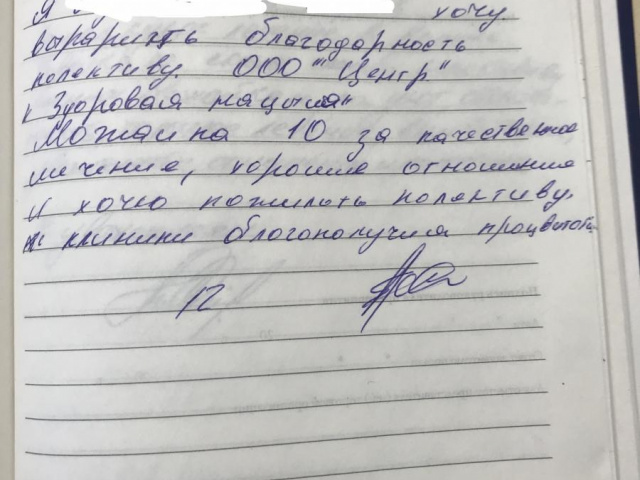 Я хочу
выразить благодарность
колективу ООО "Центр"
"Здоровая нацыия"
Можайка 10 за качественное
личение, хорошие отношение
и хочю пожилать колективу,
и клиники благополучия процвитать
12